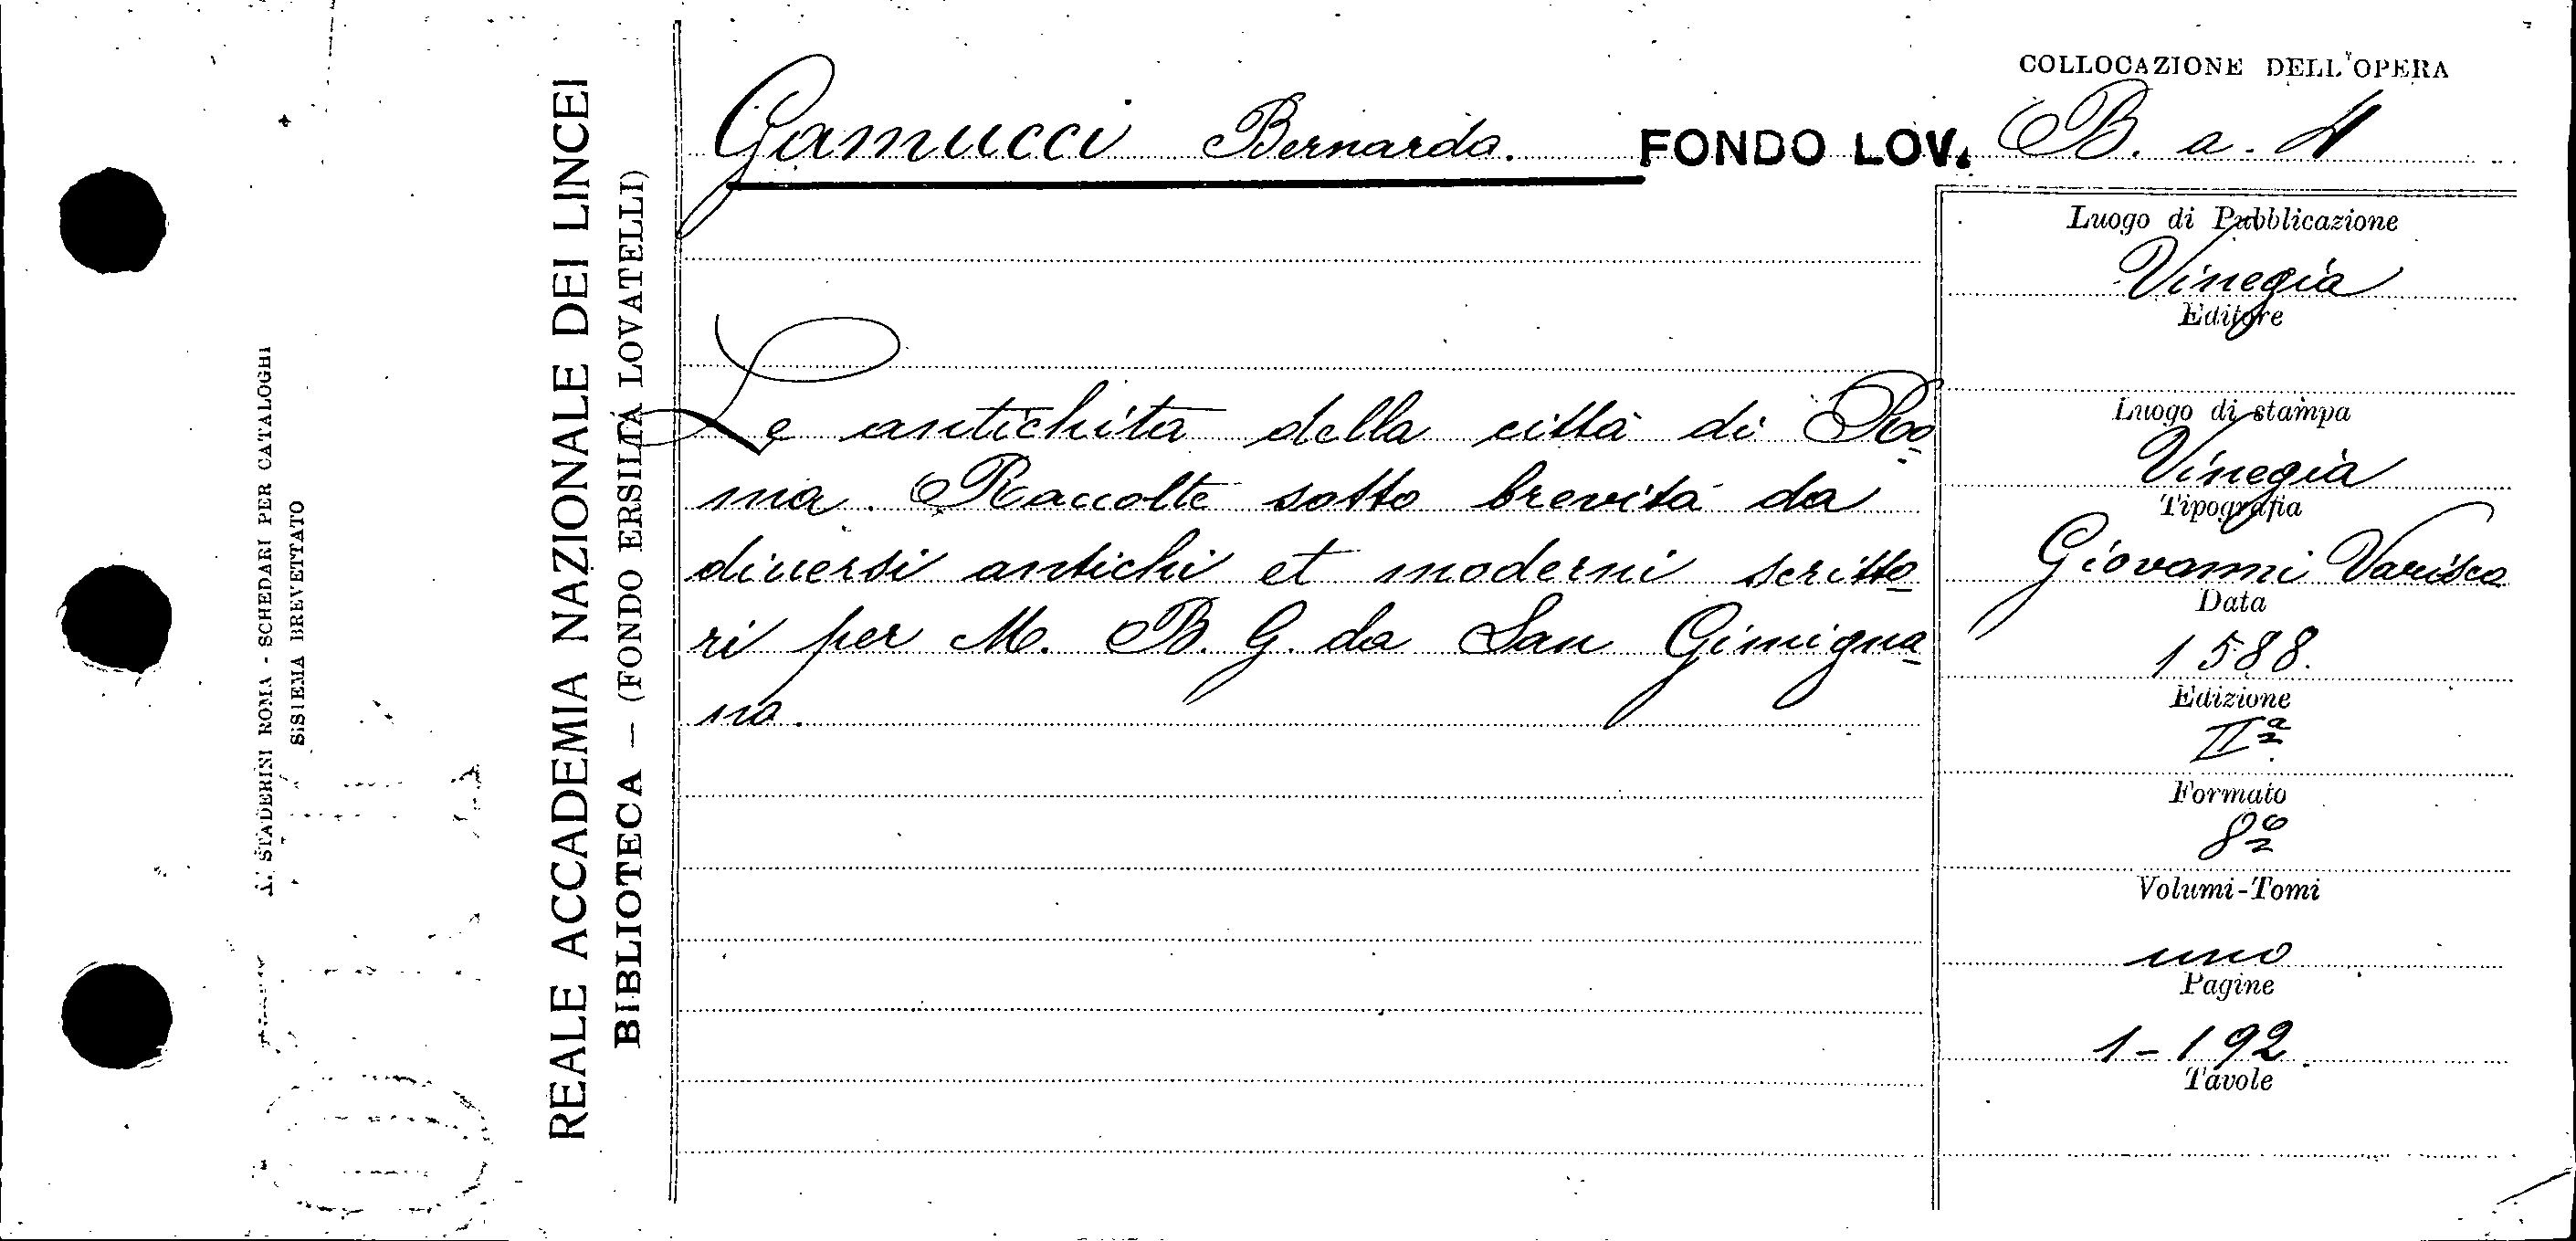 COLLOCAZIONE DELL'OPERA
Gamucci Bernardo. FONDO LOV. B. a. 4
REALE ACCADEMIA NAZIONALE DEI LINCEI
BIBLIOTECA — (FONDO ERSILIA LOVATELLI)
STADERINI ROMA - SCHEDARI PER CATALOGHI
SISTEMA BREVETTATO
Le antichità della città di Ro-
ma. Raccolte sotto brevità da
diversi antichi et moderni scritto-
ri per M. B. G. da San Gimigna-
no.
Luogo di Pubblicazione
Vinegia
Editore
Luogo di stampa
Vinegia
Tipografia
Giovanni Varisco
Data
1588.
Edizione
IIª
Formato
8º
Volumi-Tomi
uno
Pagine
1-192
Tavole